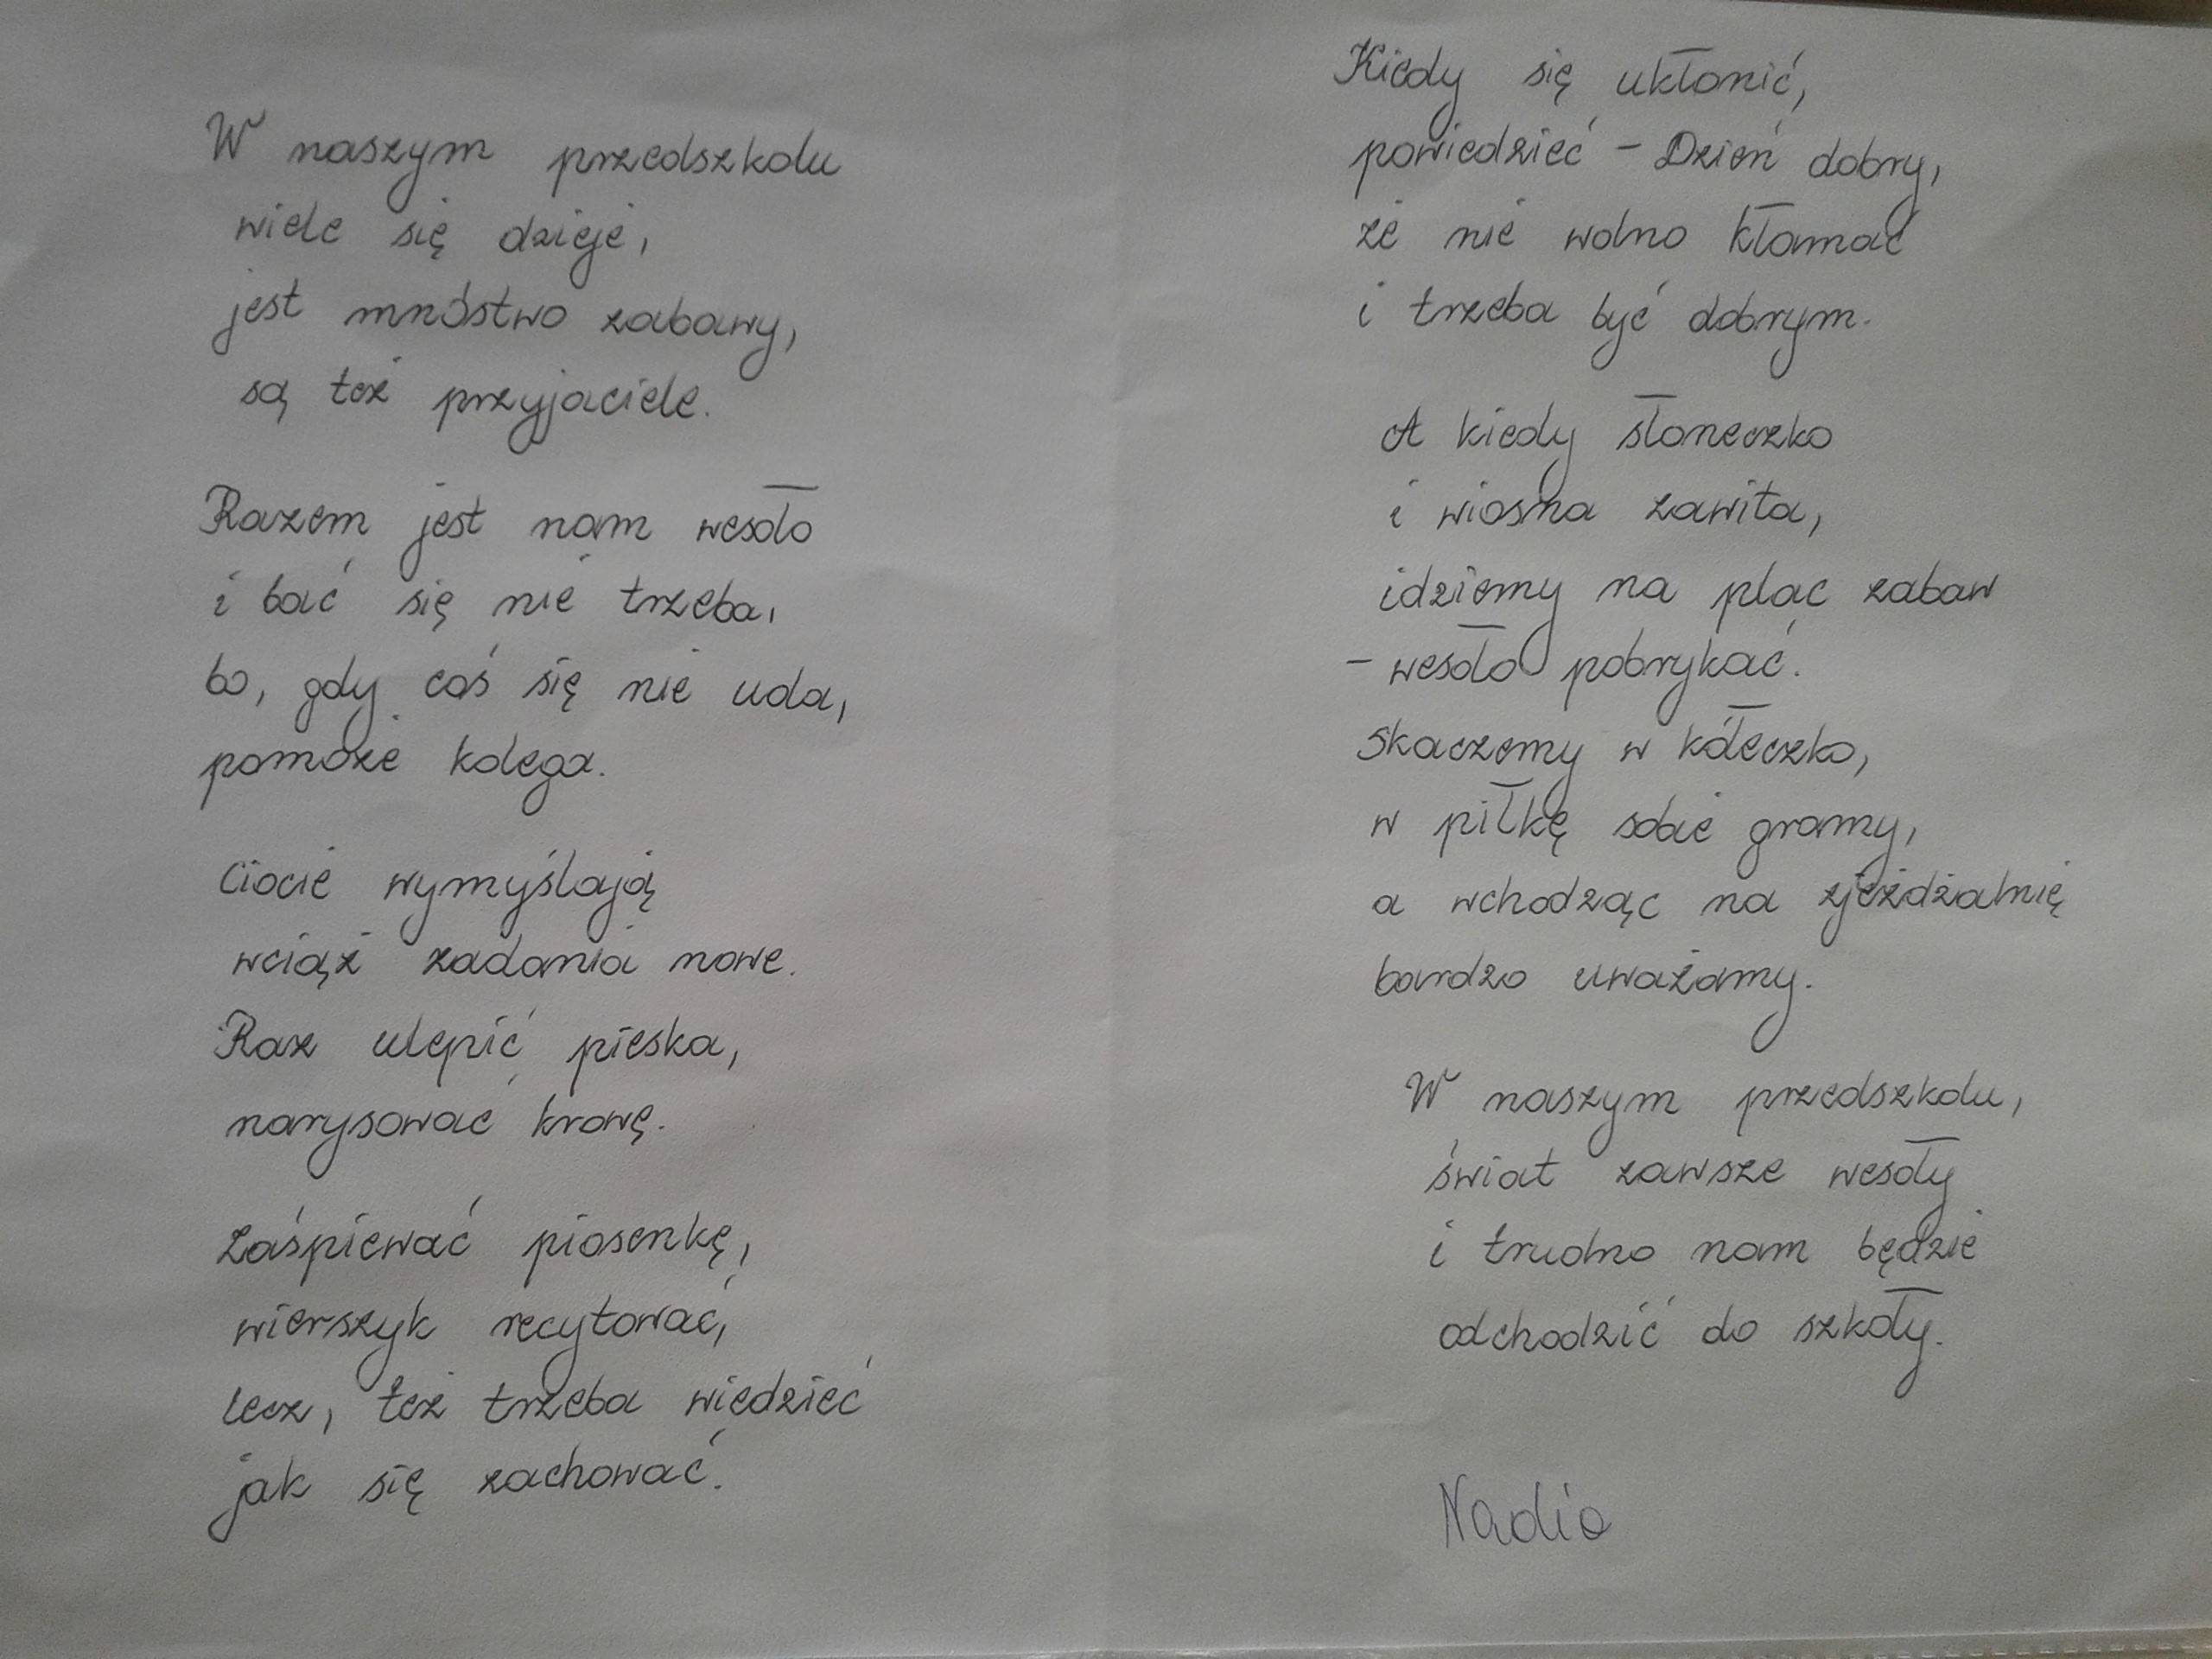 W naszym przedszkolu
wiele się dzieje,
jest mnóstwo zabawy,
są też przyjaciele.
Razem jest nam wesoło
i bać się nie trzeba,
bo, gdy coś się nie uda,
pomoże kolega.
Ciocie wymyślają
wciąż zadania nowe.
Raz ulepić pieska,
narysować krowę.
Zaśpiewać piosenkę,
wierszyk recytować,
lecz, też trzeba wiedzieć
jak się zachować.
Kiedy się ukłonić,
powiedzieć - Dzień dobry,
że nie wolno kłamać
i trzeba być dobrym.
A kiedy słoneczko
i wiosna zawita,
idziemy na plac zabaw
- wesoło pobrykać.
Skaczemy w kółeczko,
w piłkę sobie gramy,
a wchodząc na zjeżdżalnię
bardzo uważamy.
W naszym przedszkolu,
świat zawsze wesoły
i trudno nam będzie
odchodzić do szkoły.
Nadia